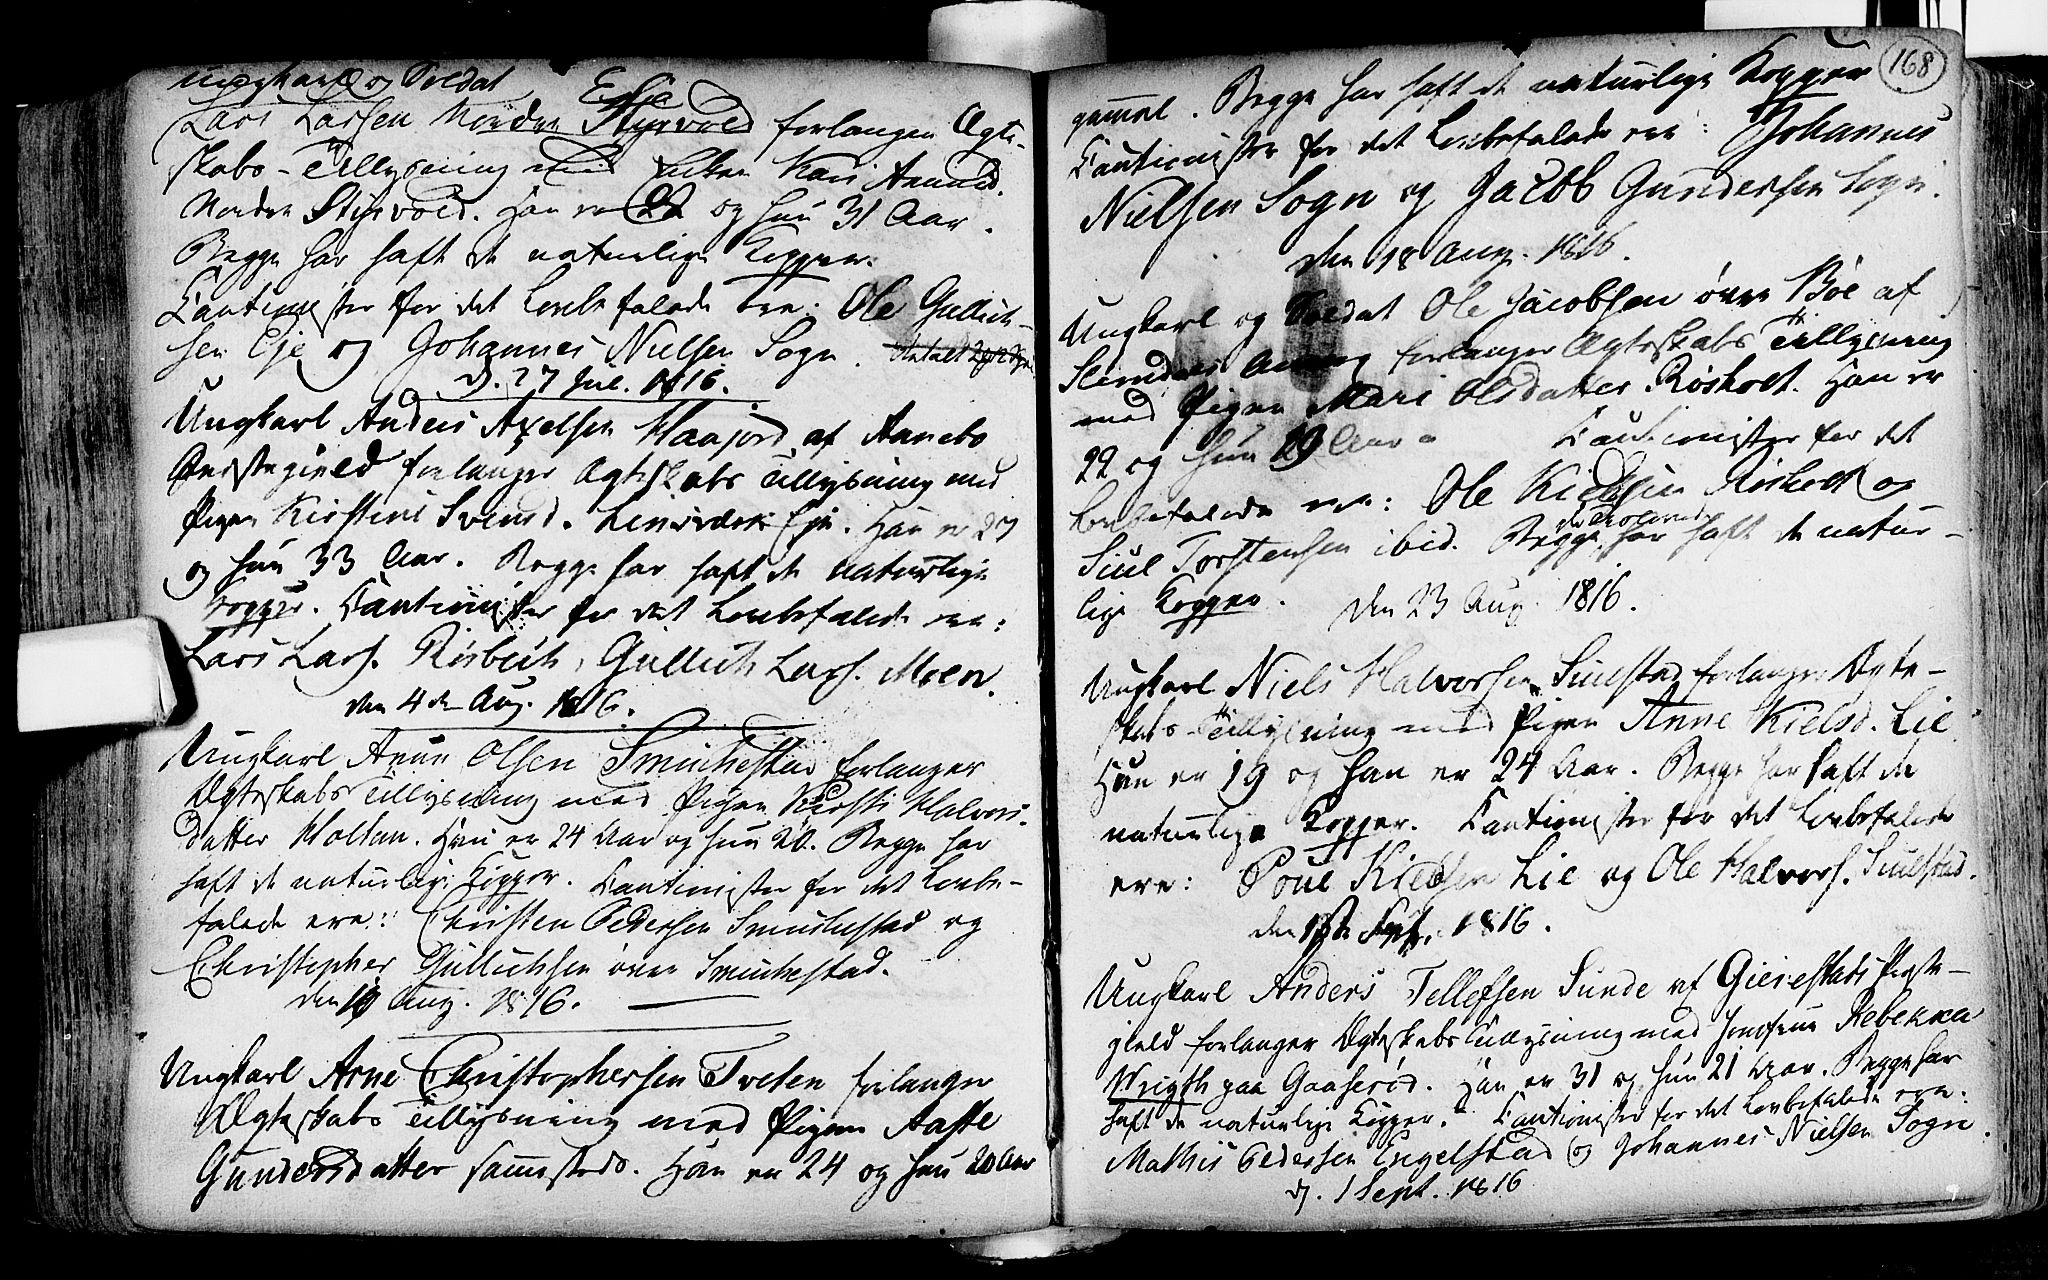 Ungkarl og Soldat
Lars Larsen Norden Styrvold Eje forlanger Ægte-
skabs-Tillysning med Enken Kari Amund.
Norden Styrvold. Han er 22 og hun 31 Aar.
Begge har haft de naturlige Kopper.
Cautionister for det Lovbefalede ere: Ole Gullich-
sen Eje og Johannes Nielsen Sogn.
d. 27 Jul. 1816.
Ungkarl Anders Axelsen Haajord af Annebo
Præstegield forlanger Ægteskabs Tillysning med
Pigen Kirstine Svensd. Eje. Han er 27
og hun 33 Aar. Begge har haft de naturlige
Kopper. Cautionister for det Lovbefalede ere:
Lars Lars. Rørbech, Gullich Lars. Moen.
den 4de Aug. 1816.
Ungkarl Anun Olsen Smuchestad forlanger
Ægteskabs Tillysning med Pigen Kirsti Halvors-
datter Holtan. Han er 24 Aar og hun 20. Begge har
haft de naturlige Kopper. Cautionister for det Lovbe-
falede ere: Christen Pedersen Smuchestad og
Christopher Gullichsen øvre Smuchestad.
den 10 Aug. 1816.
Ungkarl Arne Christophersen Tveten forlanger
Ægteskabs Tillysning med Pigen Aaste
Gundersdatter sammesteds. Han er 24 og hun 20 Aar
168
gammel. Begge har haft de naturlige Kopper
Cautionister for det Lovbefalede ere: Johannes
Nielsen Sogn og Jacob Gundersen Sogn.
den 18 Aug. 1816.
Ungkarl og Soldat Ole Jacobsen øvre Bøe af
Slemdals forlanger Ægteskabs Tillysning
med Pigen Mari Olsdatter Røsholt. Han er
22 og hun 19 Aar. Cautionister for det
Lovbefalede ere: Ole Kield sen Røsholt og
Siul Torstensen ibid. Begge har haft de natur-
lige Kopper. den 23 Aug. 1816.
Ungkarl Niels Halvorsen Siulstad forlanger Ægte-
skabs-Tillysning med Pigen Anne Kielsd. Lie.
Hun er 19 og han er 24 Aar. Begge har haft de
naturlige Kopper. Cautionister for det Lovbefalede
ere: Poul Kieldsen Lie og Ole Halvors. Siulstad.
den 1ste Sept. 1816.
Ungkarl Anders Tellefsen Sunde af Gierestads Præste-
gield forlanger Ægteskabs Tillysning med Jomfrue Rebekka
Wrigth paa Gaaserød. Han er 31 og hun 21 Aar. Begge har
haft de naturlige Kopper. Cautionister for det Lovbefalede ere:
Mathis Pedersen Engelstad og Johannes Nielsen Sogn.
d. 1 Sept. 1816